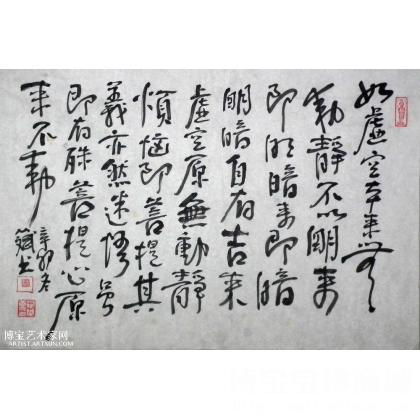 如虛空本來無
動靜不以明來
即明暗來即暗
明暗自有去來
虛空原無動靜
煩惱即菩提其
義亦然迷悟虽
即有殊菩提心原
來不動
辛卯冬
博宝艺术家网
ARTIST.ARTXUN.COM